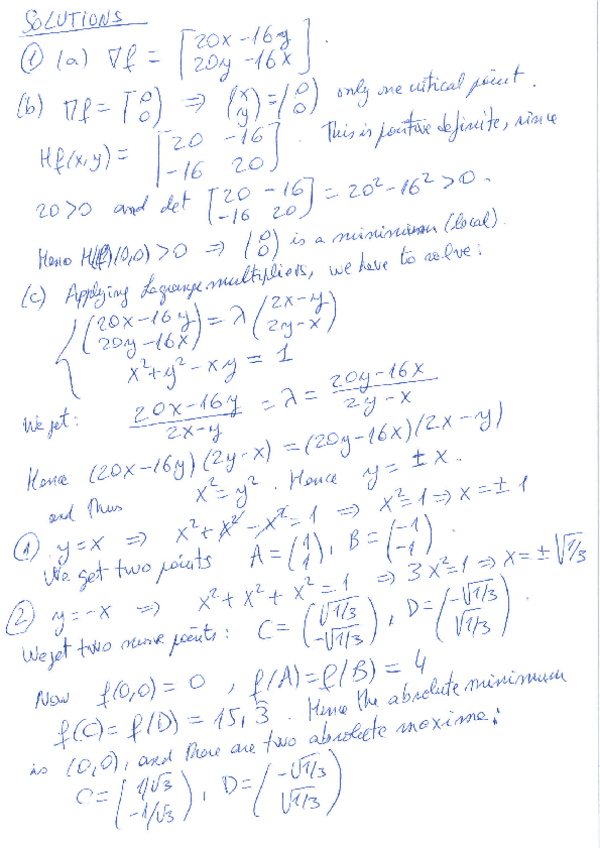 SOLUTIONS
① (a) ∇f = [20x-16y
20y-16x].
(b) ∇f = [0 0] ⇒ (x y) = (0 0) only one critical point.
Hf(x,y) = [20 -16
-16 20]. This is positive definite, since
20>0 and det [20 -16
-16 20] = 20² - 16² > 0.
Hence H(f)(0,0) > 0 ⇒ (0 0) is a minimum (local).
(c) Applying Lagrange multipliers, we have to solve:
{ (20x-16y
20y-16x) = λ (2x-y
2y-x)
x²+y²-xy = 1
We get: (20x-16y)/(2x-y) = λ = (20y-16x)/(2y-x)
Hence (20x-16y)(2y-x) = (20y-16x)(2x-y)
and thus x² = y². Hence y = ± x.
① y=x ⇒ x²+x²-x²=1 ⇒ x²=1 ⇒ x=±1
We get two points A = (1 1), B = (-1 -1).
② y=-x ⇒ x²+x²+x²=1 ⇒ 3x²=1 ⇒ x=±√1/3
We get two more points: C = (√1/3 -√1/3), D = (-√1/3 √1/3).
Now f(0,0) = 0, f(A)=f(B) = 4
f(C)=f(D) = 15,3. Hence the absolute minimum
is (0,0), and there are two absolute maxima:
C = (1/√3 -1/√3), D = (-√1/3 √1/3)